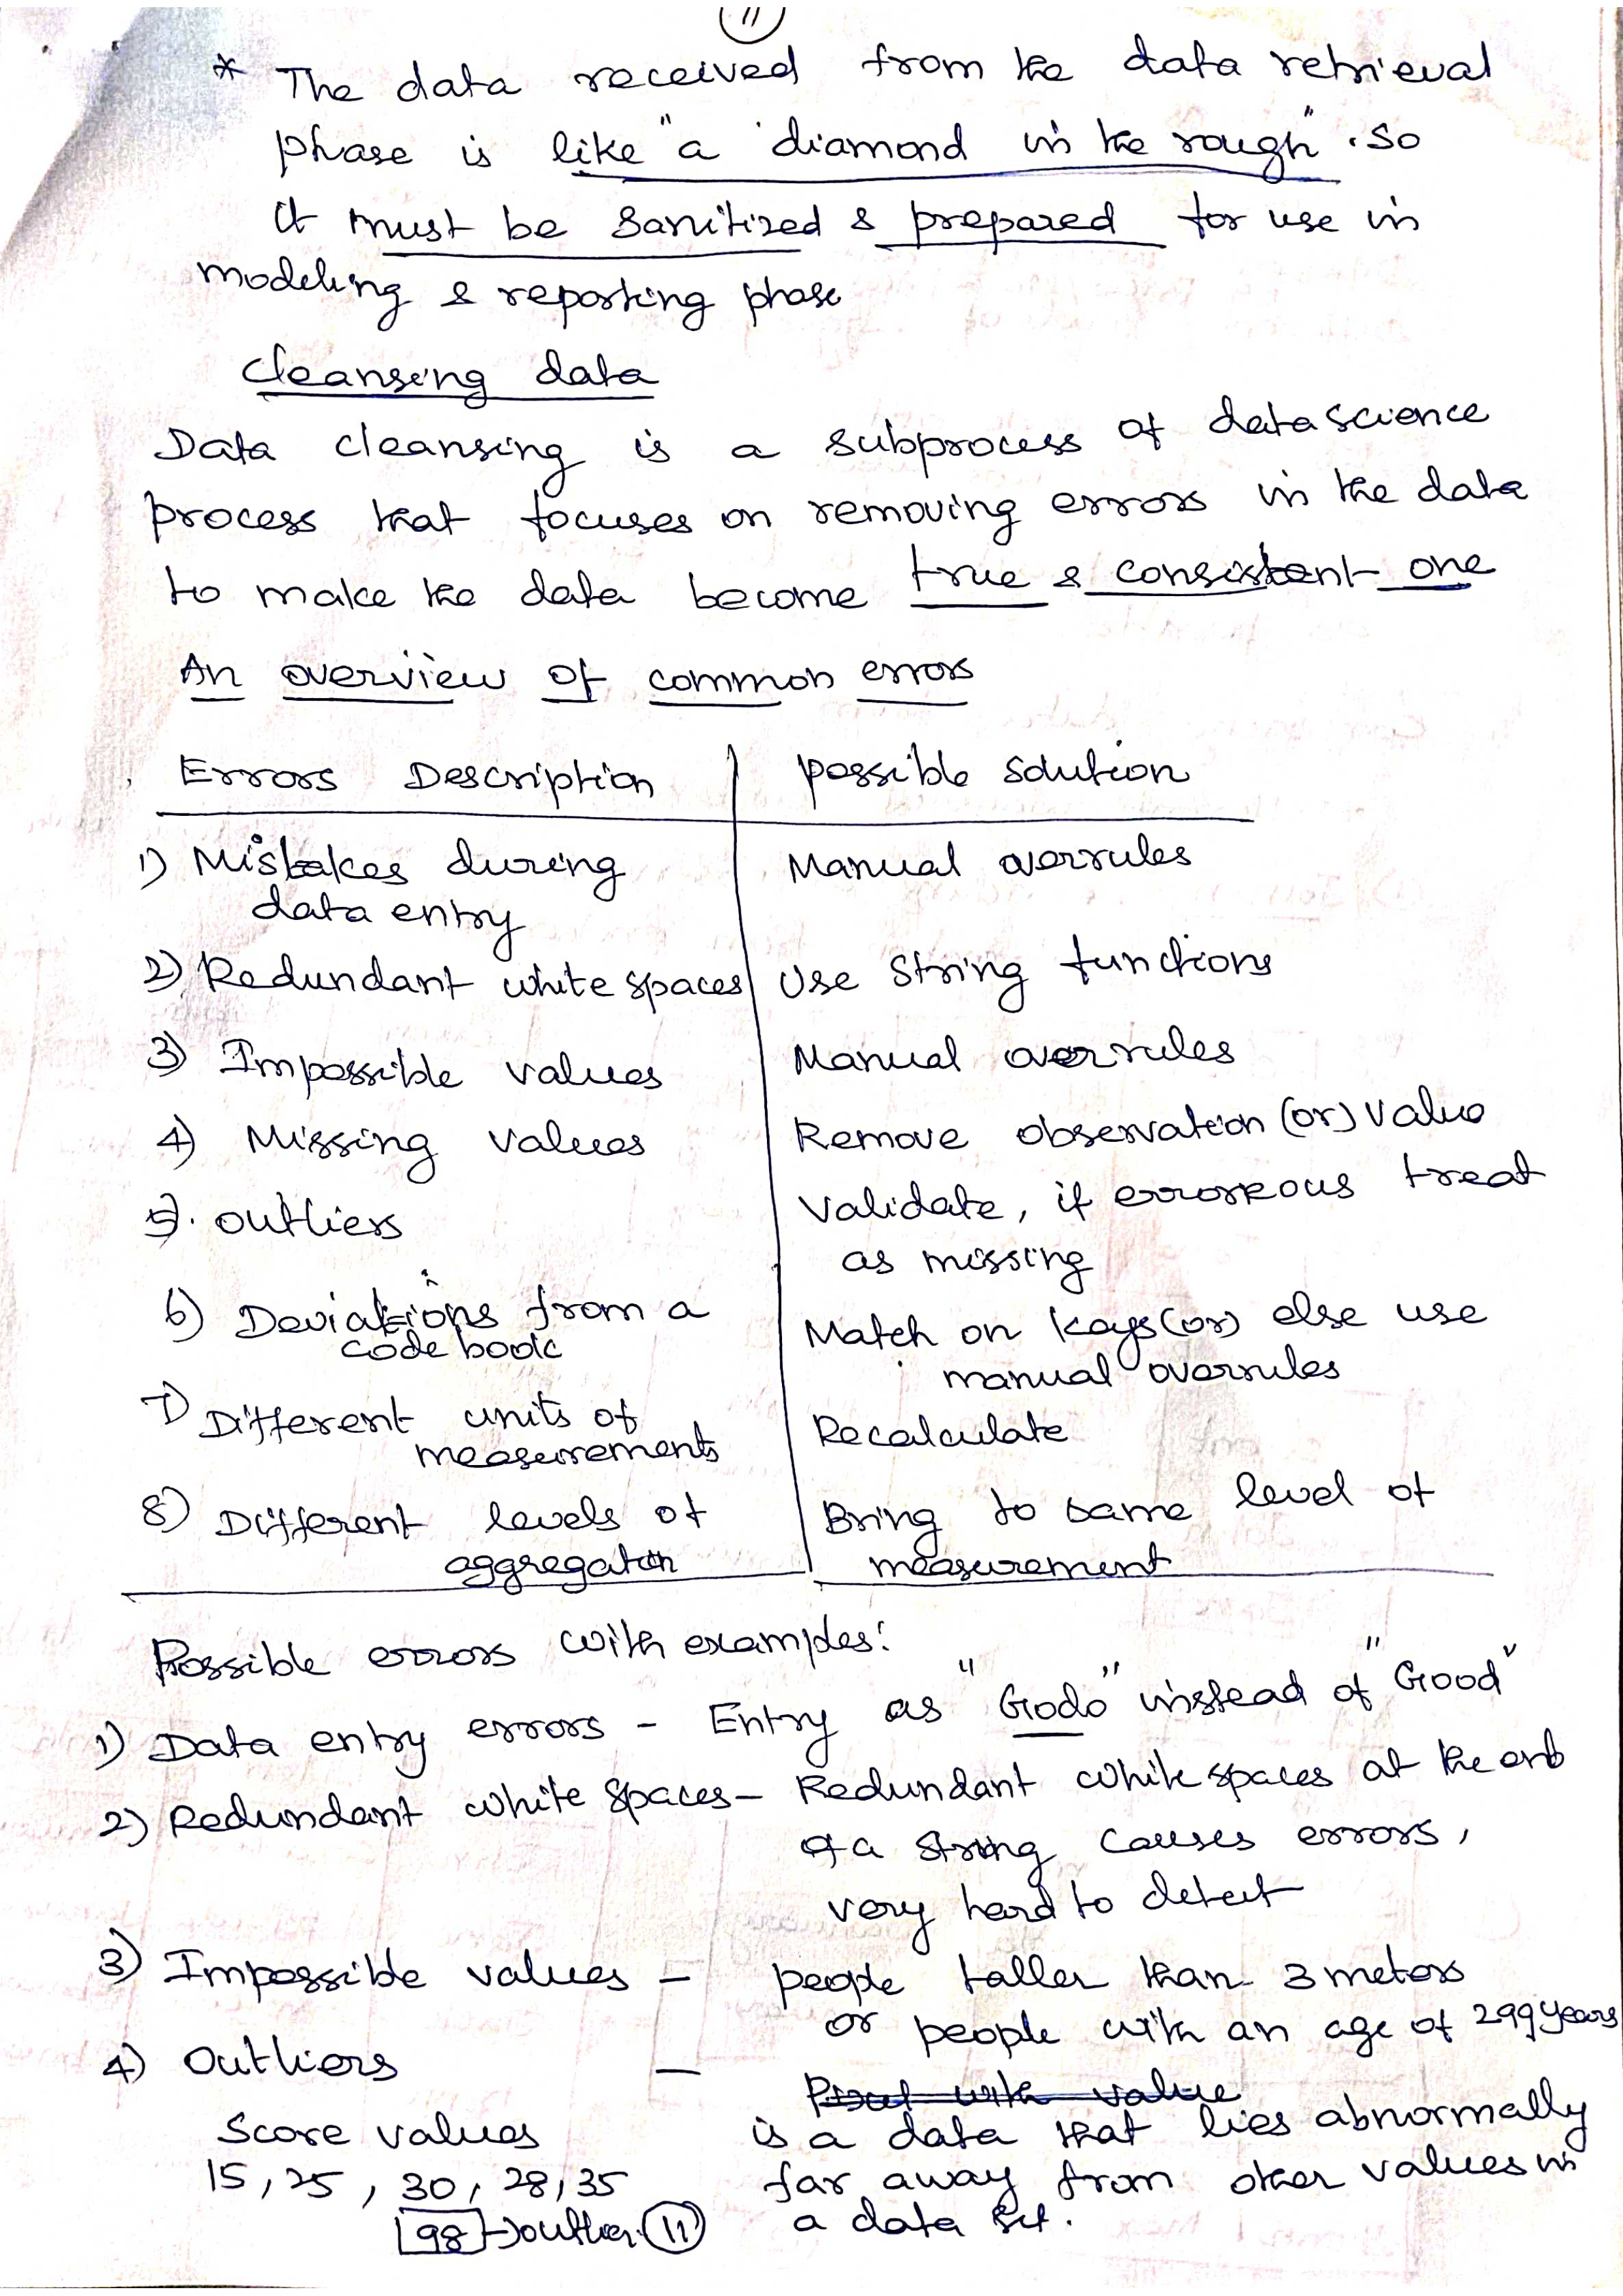 11
* The data received from the data retrieval
phase is like "a diamond in the rough". So
it must be sanitized & prepared for use in
modeling & reporting phase
Cleansing data
Data cleansing is a subprocess of data science
process that focuses on removing errors in the data
to make the data become true & consistent one
An overview of common errors
Errors Description | possible solution
1) Mistakes during | Manual overrules
data entry
2) Redundant white spaces | Use string functions
3) Impossible values | Manual overrules
4) Missing values | Remove observation (or) value
5). outliers | Validate, if erroneous treat
as missing
6) Deviations from a | Match on keys (or) else use
code book | manual overrules
7) Different units of | Recalculate
measurements
8) Different levels of | Bring to same level of
aggregation | measurement
Possible errors with examples:
1) Data entry errors - Entry as "Godo" instead of "Good"
2) Redundant white spaces - Redundant white spaces at the end
of a string causes errors,
very hard to detect
3) Impossible values - people taller than 3 meters
or people with an age of 299 years
4) Outliers -
Score values is a data that lies abnormally
15, 25, 30, 28, 35 far away from other values in
98 → outlier. 11 a data set.